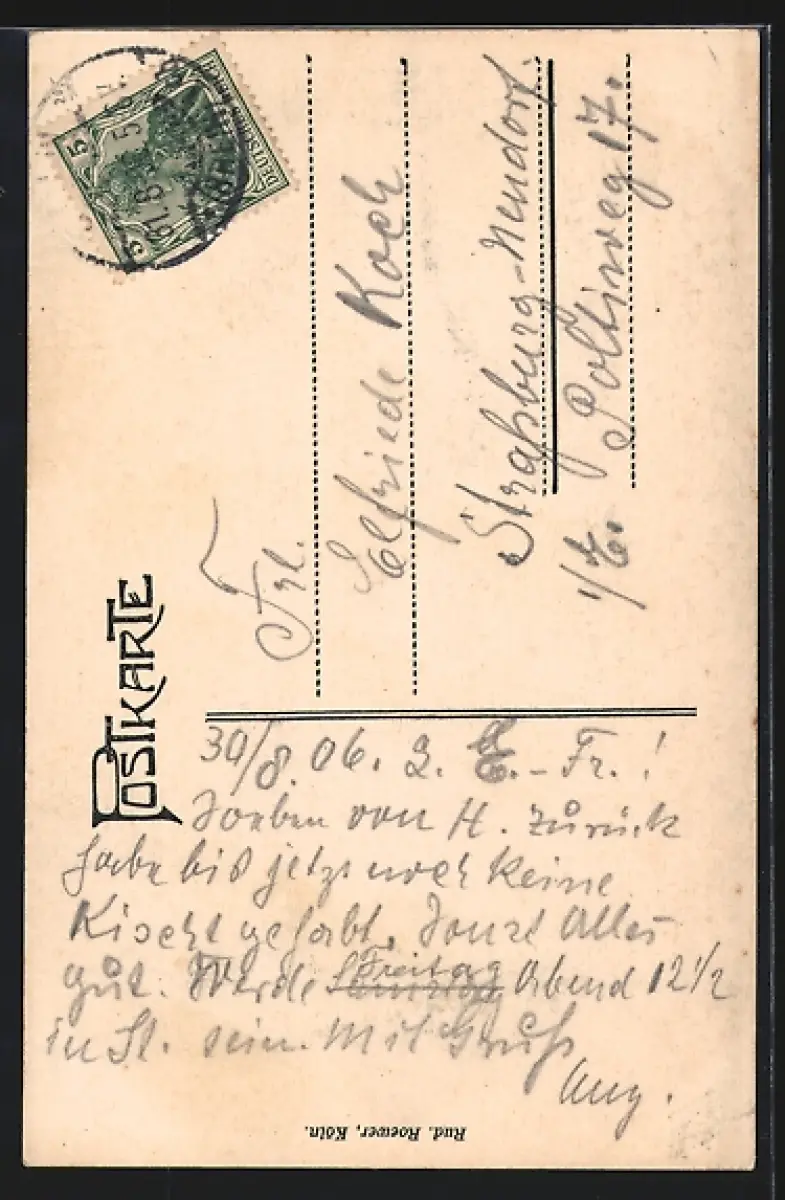 POSTKARTE
DEUTSCHES REICH
5 5
Frl.
Elfriede Koch
Straßburg-Neudorf.
i/E. Poltinweg 17.
30/8.06. L. E.- Fr.!
Soeben von H. zurück
habe bis jetzt noch keine
gehabt. Sonst Alles
gut. Werde Freitag Abend 12 1/2
in St. sein. Mit Gruß
Aug.
Rud. Roewer, Köln.